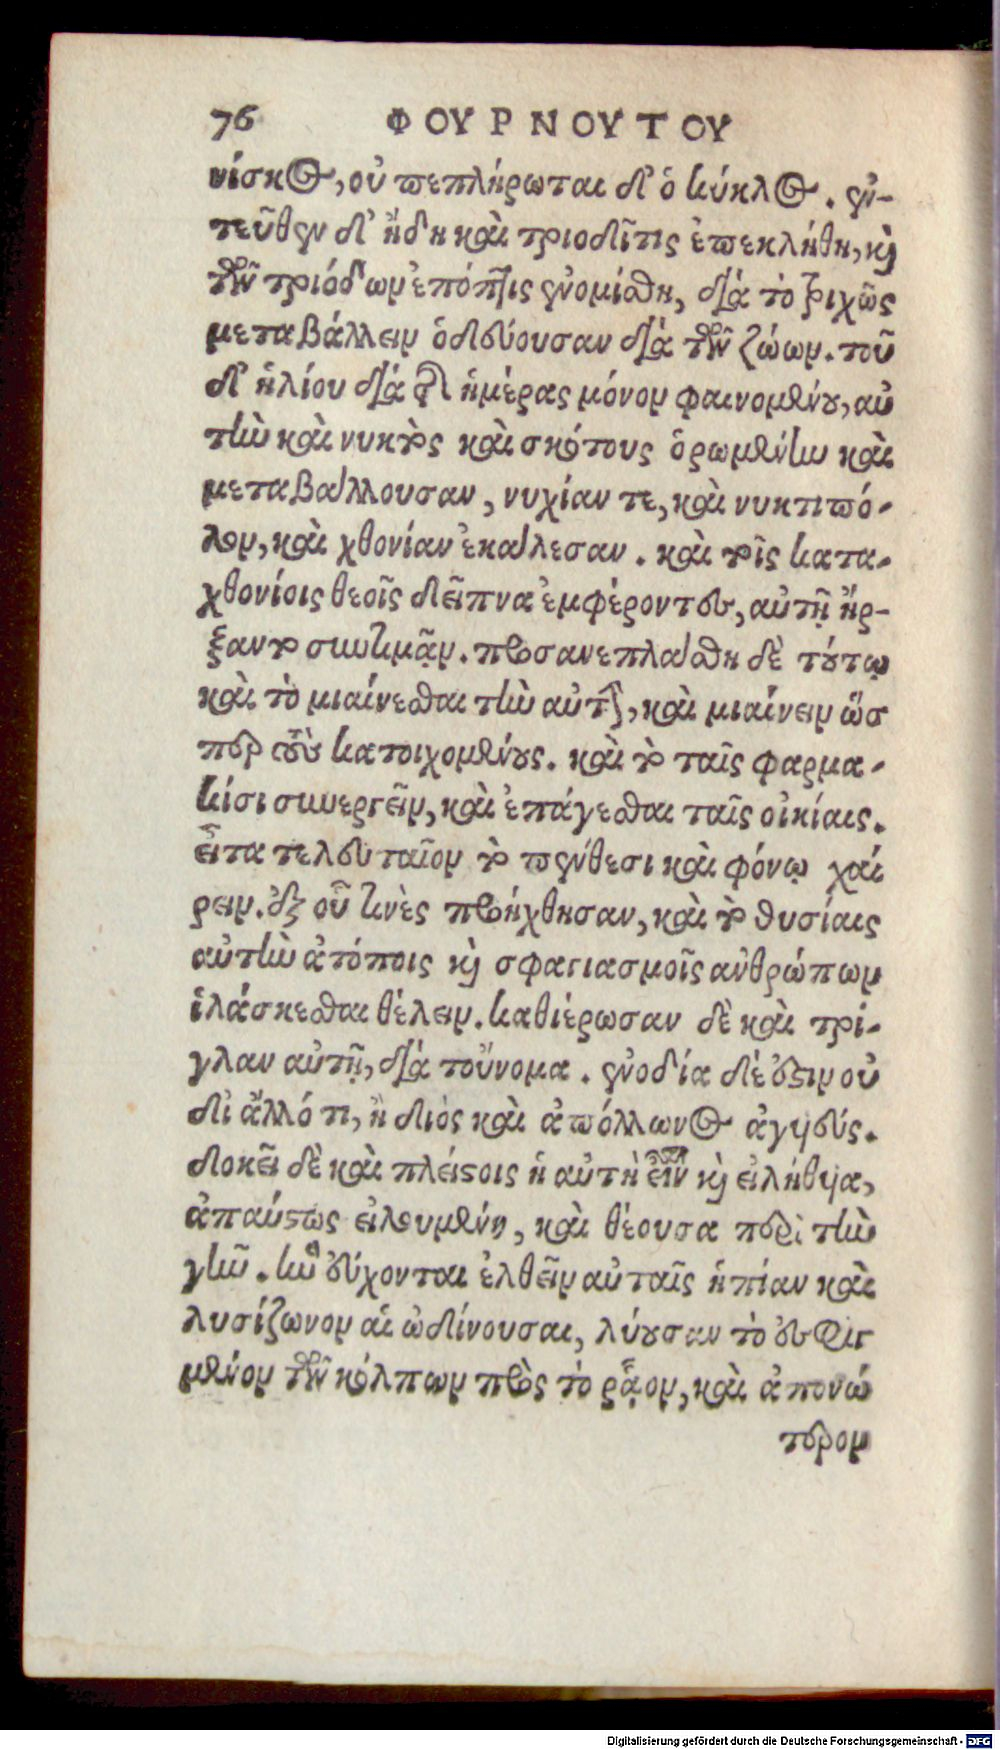 76 ΦΟΥΡΝΟΥΤΟΥ
νίσκος, οὗ πεπλήρωται δ' ὁ κύκλος. ἐν-
τεῦθεν δ' ἤδη καὶ τριοδῖτις ἐπεκλήθη, καὶ
τῶν τριόδων ἐπόπτις ἐνομίσθη, διὰ τὸ τριχῶς
μεταβάλλειν ὁδεύουσαν διὰ τῶν ζώων. τοῦ
δ' ἡλίου διὰ τῆς ἡμέρας μόνον φαινομένου, αὐ
τὴν καὶ νυκτὸς καὶ σκότους ὁρωμένην καὶ
μεταβάλλουσαν, νυχίαν τε, καὶ νυκτιπό-
λον, καὶ χθονίαν ἐκάλεσαν. καὶ τοῖς κατα-
χθονίοις θεοῖς δεῖπνα ἐμφέροντες, αὐτῇ ἤρ-
ξαντο συντιμᾷν. προσανεπλάσθη δὲ τούτῳ
καὶ τὸ μιαίνεσθαι τὴν αὐτὴν, καὶ μιαίνειν ὥσ
περ τοὺς κατοιχομένους. καὶ τὸ ταῖς φαρμα-
κίσι συνεργεῖν, καὶ ἐπάγεσθαι ταῖς οἰκίαις.
εἶτα τελευταῖον τὸ πένθεσι καὶ φόνῳ χαί
ρειν. ἐξ οὗ τινὲς προήχθησαν, καὶ τὸ θυσίαις
αὐτὴν ἀτόποις καὶ σφαγιασμοῖς ἀνθρώπων
ἱλάσκεσθαι θέλειν. καθιέρωσαν δὲ καὶ τρί-
γλαν αὐτῇ, διὰ τοὔνομα. ἐνοδία δέ ἐστιν οὐ
δι' ἄλλό τι, ἢ διὸς καὶ ἀπόλλωνος ἀγυιεύς.
δοκεῖ δὲ καὶ πλείστοις ἡ αὐτὴ εἶναι καὶ εἰλήθυια,
ἀπαύστως εἰλουμένη, καὶ θέουσα περὶ τὴν
γῆν. ἣν εὔχονται ἐλθεῖν αὐταῖς ἠπίαν καὶ
λυσίζωνον αἱ ὠδίνουσαι, λύουσαν τὸ ἐσφιγ
μένον τῶν κόλπων πρὸς τὸ ῥᾷον, καὶ ἀπονώ
τερον
Digitalisierung gefördert durch die Deutsche Forschungsgemeinschaft - DFG